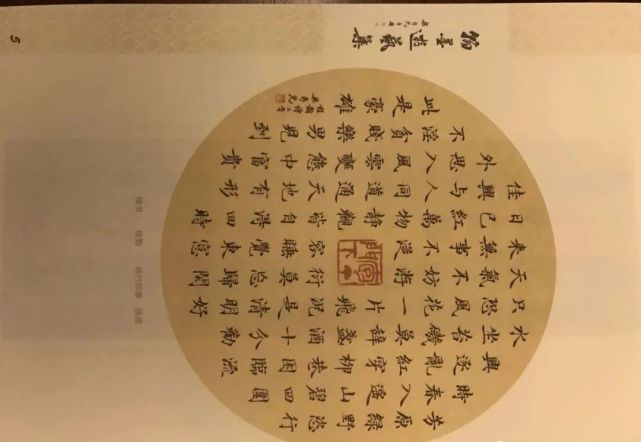 翰墨遊藝集
芳原綠野恣行
時春入遙山碧四圍
興逐亂紅穿柳巷困臨流
水坐苔磯莫辭盞酒十分勸
只恐風花一片飛況是清明好
天氣不妨遊衍莫忘歸閑
來無事不從容睡覺東窓
日已紅萬物靜觀皆自得四時
佳興与人同道通天地有形
外思入風雲變態中富貴
不淫貧賤樂男兒到
此是豪雄
程顥詩二首
5